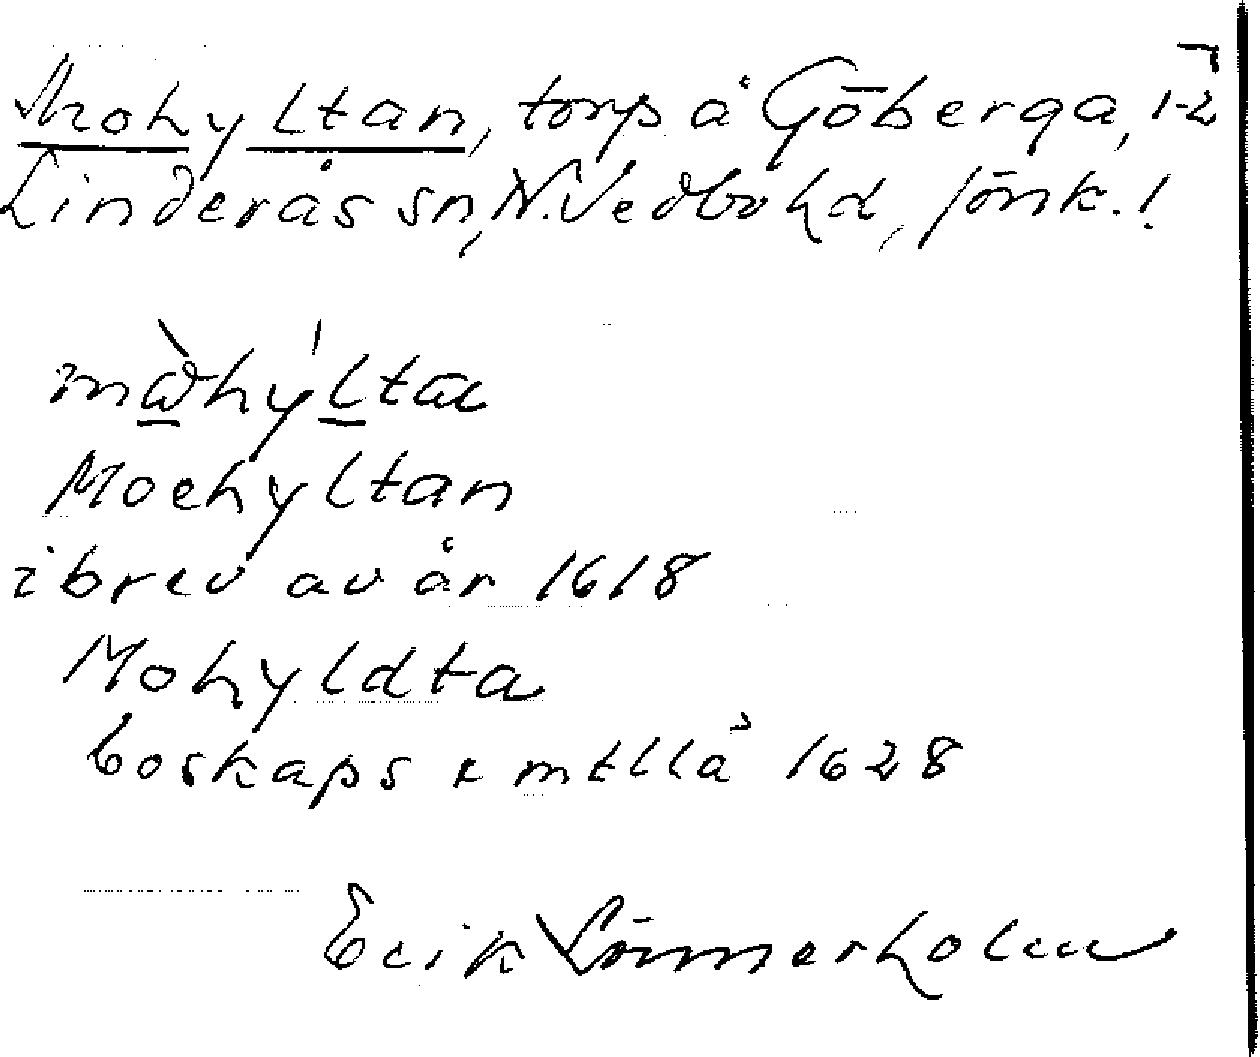 Mohyltan, torp å Göberga, 1-2
Linderås sn, N. Vedbo hd, Jönk. l
Moehyltan
i brev av år 1618
Mohyldta
boskaps x mtllä 1628
Erik Lönnerholm